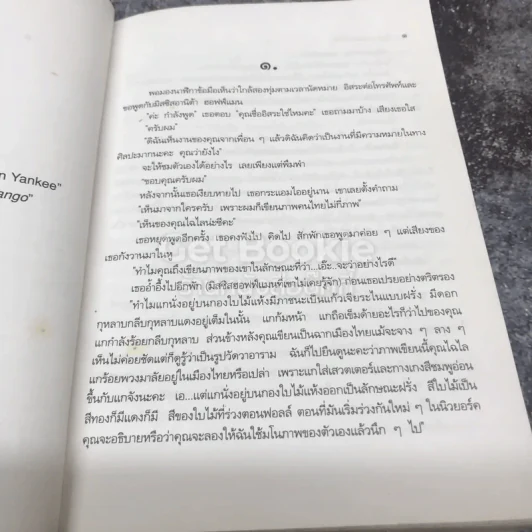 n Yankee"
ango"
๑.
พอมองนาฬิกาข้อมือเห็นว่าใกล้สองทุ่มตามเวลานัดหมาย อิสระต่อโทรศัพท์และ
ขอพูดกับมิสซิสอานิต้า ฮอฟฟ์แมน
"ค่ะ กำลังพูด" เธอตอบ "คุณชื่ออิสระใช่ไหมคะ" เธอถามมาบ้าง เสียงเธอใส
"ครับผม"
"ดิฉันเห็นงานของคุณจากเพื่อน ๆ แล้วดิฉันคิดว่าเป็นงานที่มีความหมายในทาง
ศิลปะมากนะคะ คุณว่ายังไง"
จะให้ชมตัวเองได้อย่างไร เลยเพียงแต่พึมพำ
"ขอบคุณครับผม"
หลังจากนั้นเธอเงียบหายไป เธอกระแอมไออยู่นาน เขาเลยตั้งคำถาม
"เห็นมาจากใครครับ เพราะผมก็เขียนภาพคนไทยไม่กี่ภาพ"
"เห็นของคุณไฉไลน่ะซีคะ"
เธอหยุดพูดอีกครั้ง เธอคงฟังไป คิดไป สักพักเธอพูดมาค่อย ๆ แต่เสียงของ
เธอกังวานมาในหู
"ทำไมคุณถึงเขียนภาพของเขาในลักษณะที่ว่า...เอ๊ะ...จะว่าอย่างไรดี"
เธออ้ำอึ้งไปอีกพัก (มิสซิสฮอฟฟ์แมนที่เขาไม่เคยรู้จัก) ก่อนเธอเปรยอย่างตริตรอง
"ทำไมแกนั่งอยู่บนกองใบไม้แห้งมีภาชนะเป็นแก้วเจียระไนแบบฝรั่ง มีดอก
กุหลาบกลีบกุหลาบแดงอยู่เต็มในนั้น แกก้มหน้า แกถือเข็มด้ายอะไรก็ว่าไปของคุณ
แกกำลังร้อยกลีบกุหลาบ ส่วนข้างหลังคุณเขียนเป็นฉากเมืองไทยแม้จะจาง ๆ ลาง ๆ
เห็นไม่ค่อยชัดแต่ก็ดูรู้ว่าเป็นรูปวัดวาอาราม ฉันก็ไปยืนดูนะคะว่าภาพเขียนนี้คุณไฉไล
แกร้อยพวงมาลัยอยู่ในเมืองไทยหรือเปล่า เพราะแกใส่เสวตเตอร์และกางเกงสีชมพูอ่อน
ขึ้นกับแกจังนะคะ เอ...แต่แกนั่งอยู่บนกองใบไม้แห้งออกเป็นลักษณะฝรั่ง สีใบไม้เป็น
สีทองก็มีแดงก็มี สีของใบไม้ที่ร่วงตอนฟอลล์ ตอนที่มันเริ่มร่วงกันใหม่ ๆ ในนิวยอร์ค
คุณจะอธิบายหรือว่าคุณจะลองให้ฉันใช้มโนภาพของตัวเองแล้วนึก ๆ ไป"